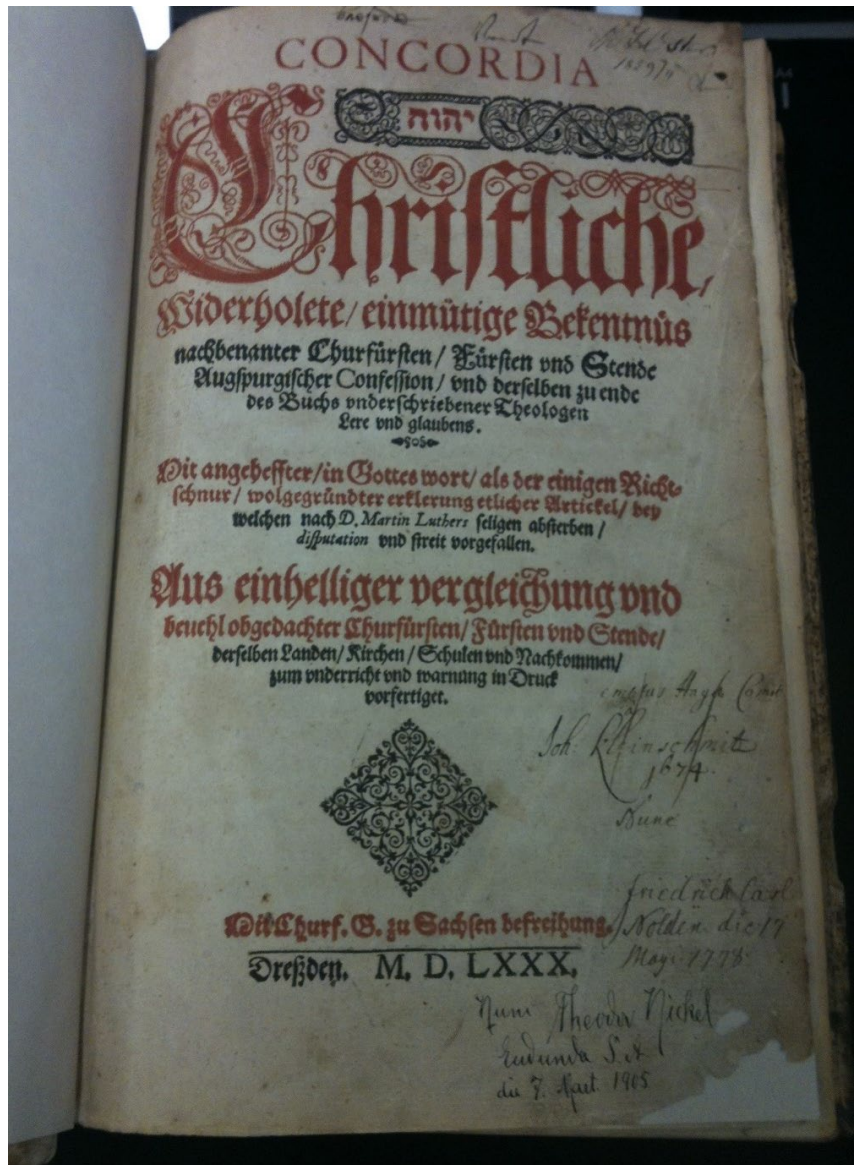 CONCORDIA
יהוה
Christliche,
Widerholete/ einmütige Bekentnüs
nachbenanter Churfürsten/ Fürsten vnd Stende
Augspurgischer Confession/ vnd derselben zu ende
des Buchs vnderschriebener Theologen
Lere vnd glaubens.
Mit angeheffter/ in Gottes wort/ als der einigen Richt-
schnur/ wolgegründter erklerung etlicher Artickel/ bey
welchen nach D. Martin Luthers seligen absterben/
disputation vnd streit vorgefallen.
Aus einhelliger vergleichung vnd
beuehl obgedachter Churfürsten/ Fürsten vnd Stende/
derselben Landen/ Kirchen/ Schulen vnd Nachkommen/
zum vnderricht vnd warnung in Druck
vorfertiget.
Joh. Kleinschmitt
1674.
Nunc
Friedrich Carl
Nolden die 17
1778
Mit Churf. G. zu Sachsen befreihung.
Dreßden. M. D. LXXX.
Nunc Theodor Nickel
Eudunda S. A.
die 7. Mart. 1905